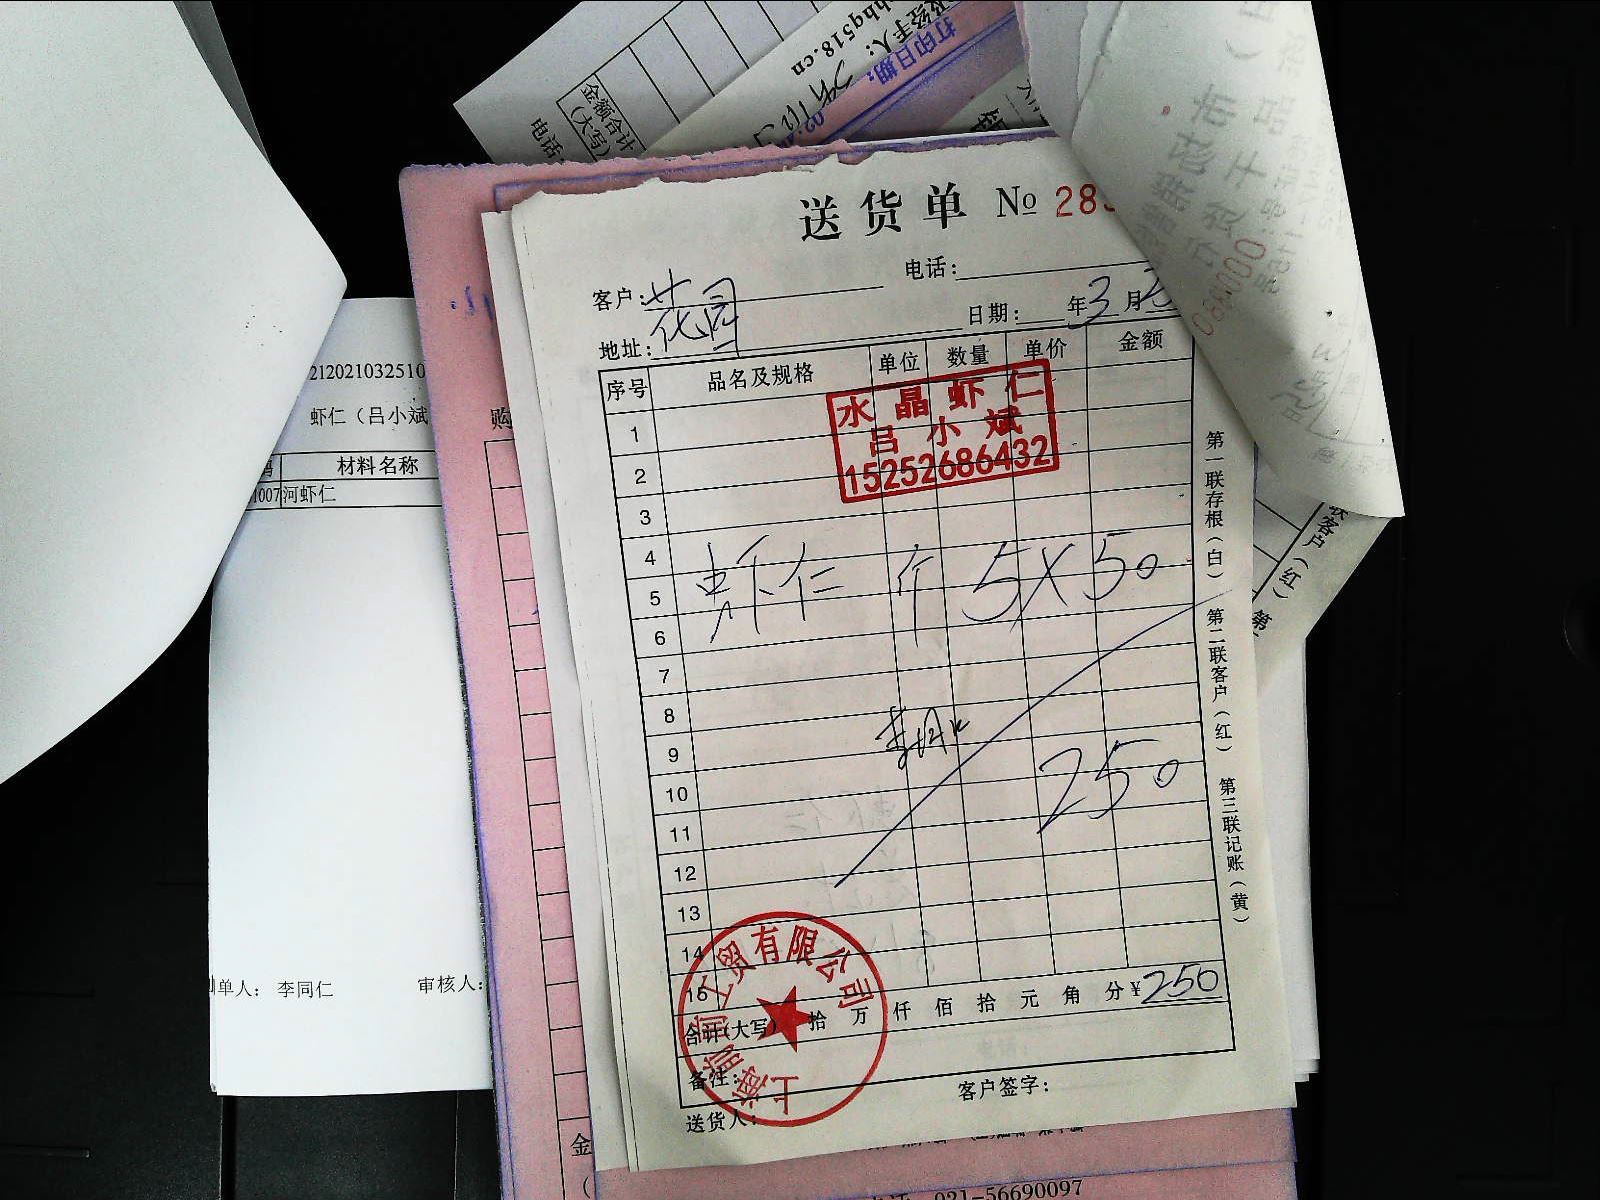 金额合计
(大写)
电话:
hhq518.cn
及经手人:
打印日期:
送货单 № 28
客户: 花园
电话:
地址:
日期: 年3月2
序号 品名及规格 单位 数量 单价 金额
水晶虾仁
吕小斌
15252686432
1
2
3
4
5
6
7
8
9
10
11
12
13
14
15
虾仁 斤 5X50
250
合计(大写) 拾 万 仟 佰 拾 元 角 分 ¥250
备注:
送货人:
客户签字:
上海前钊工贸有限公司
第一联存根(白) 第二联客户(红) 第三联记账(黄)
212021032510
虾仁(吕小斌
购
材料名称
1007 河虾仁
制单人: 李同仁
审核人:
联客户(红) 第
金
(
021-56690097